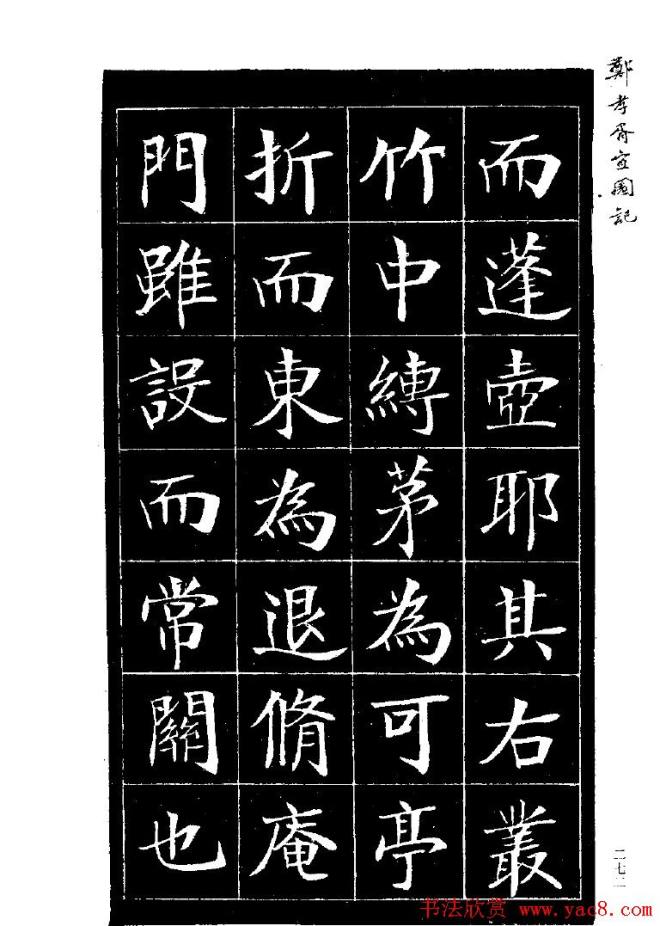 鄭孝胥宦園記
而蓬壺耶其右叢
竹中縛茅為可亭
折而東為退脩庵
門雖設而常關也
二七二
书法欣赏 www.yac8.com